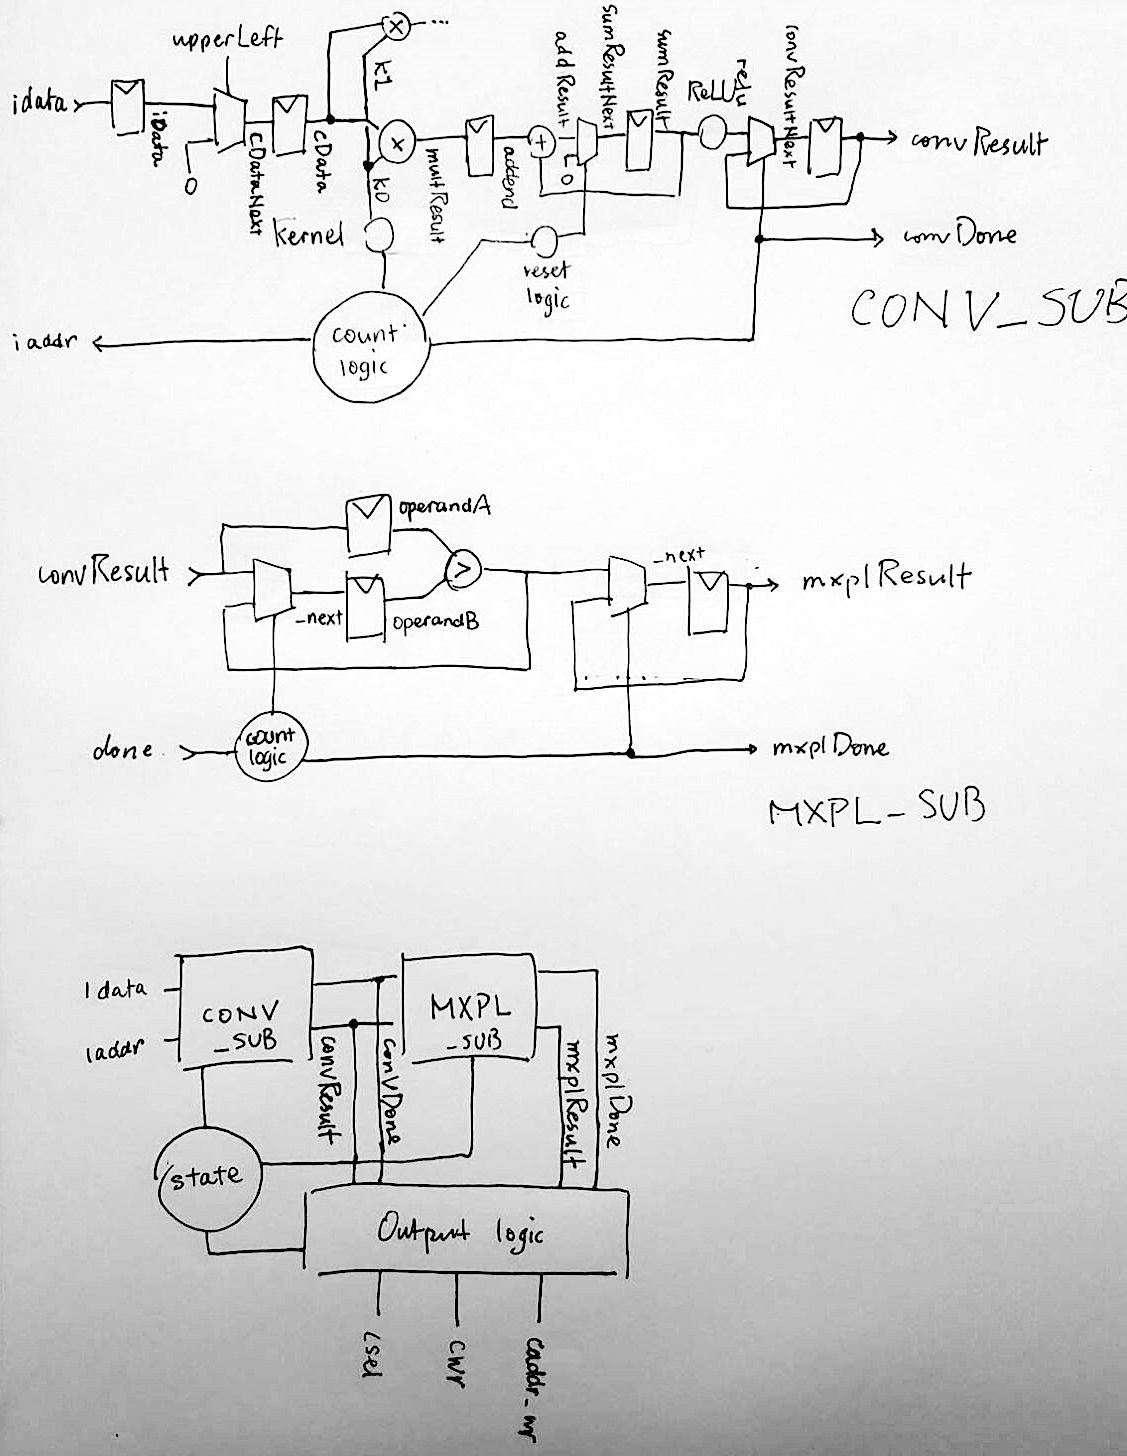 upperLeft
idata
iData
0
cDataNext
cData
x
...
K1
x
K0
multResult
addend
+
addResult
0
sumResultNext
sumResult
ReLU
relu
convResultNext
convResult
convDone
Kernel
reset
logic
count
logic
iaddr
CONV_SUB
operandA
convResult
>
_next
operandB
_next
mxplResult
done
count
logic
mxplDone
MXPL_SUB
Idata
Iaddr
CONV
_SUB
MXPL
_SUB
convResult
convDone
mxplResult
mxplDone
state
Output logic
csel
cwr
caddr_wr